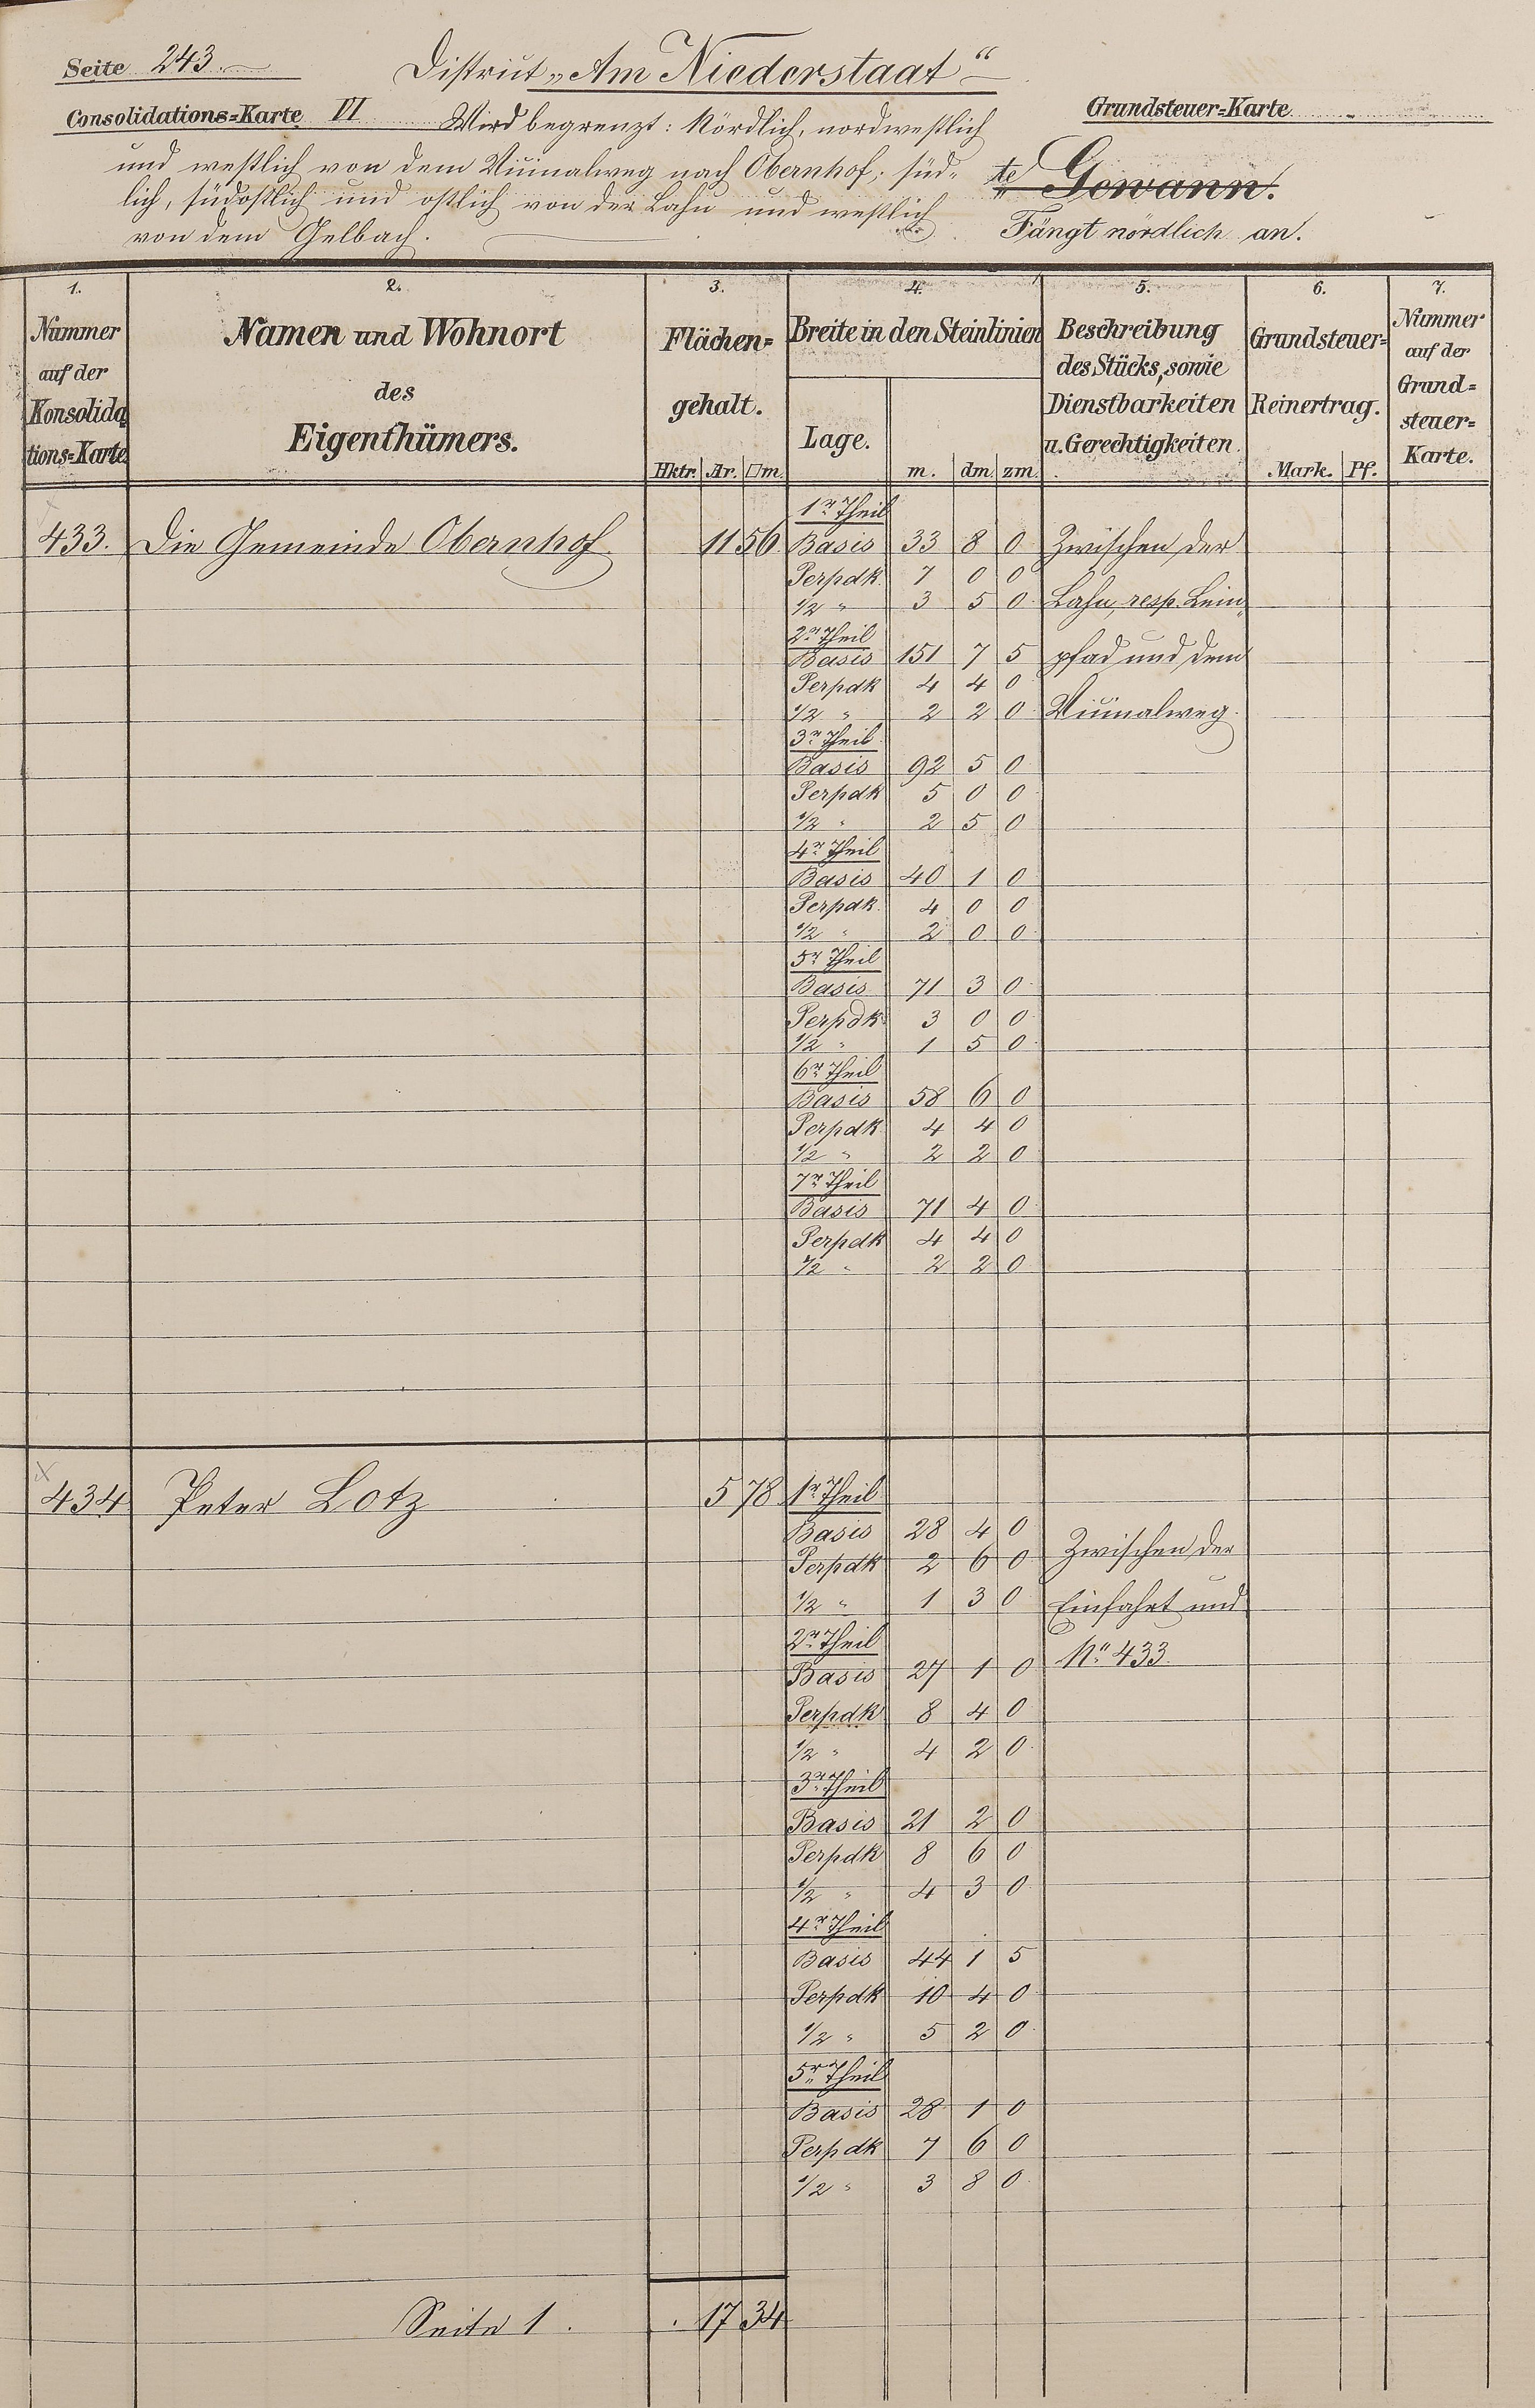 Seite 243.
District „Am Niederstaat“
Consolidations=Karte VI
Grundsteuer=Karte
Wird begrenzt: Nördlich, nordwestlich
und westlich von dem Vicinalweg nach Obernhof; süd-
lich, südostlich und ostlich von der Lahn und westlich
von dem Gelbach.
„te Gewann.
Fängt nördlich an.
1. 2. 3. 4. 5. 6. 7.
Nummer auf der Konsolida tions=Karte
Namen und Wohnort des Eigenthümers.
Flächen= gehalt.
Hktr. Ar. □m.
Breite in den Steinlinien
Lage. m. dm. zm.
Beschreibung des Stücks, sowie Dienstbarkeiten u. Gerechtigkeiten.
Grundsteuer= Reinertrag.
Mark. Pf.
Nummer auf der Grund= steuer= Karte.
1r Theil
433. Die Gemeinde Obernhof 11 56 Basis 33 8 0 Zwischen der
Perpdk. 7 0 0
1/2 " 3 5 0 Lahn, resp. Lein-
2r Theil
Basis 151 7 5 pfad und dem
Perpdk 4 4 0
1/2 " 2 2 0 Vicinalweg.
3r Theil
Basis 92 5 0
Perpdk 5 0 0
1/2 " 2 5 0
4r Theil
Basis 40 1 0
Perpdk. 4 0 0
1/2 " 2 0 0
5r Theil
Basis 71 3 0
Perpdk 3 0 0
1/2 " 1 5 0
6r Theil
Basis 58 6 0
Perpdk 4 4 0
1/2 " 2 2 0
7r Theil
Basis 71 4 0
Perpdk 4 4 0
1/2 " 2 2 0
434 Peter Lotz 5 78 1r Theil
Basis 28 4 0
Perpdk 2 6 0 Zwischen der
1/2 " 1 3 0 Einfahrt und
2r Theil
Basis 27 1 0 No 433.
Perpdk 8 4 0
1/2 " 4 2 0
3r Theil
Basis 21 2 0
Perpdk 8 6 0
1/2 " 4 3 0
4r Theil
Basis 44 1 5
Perpdk 10 4 0
1/2 " 5 2 0
5r Theil
Basis 28 1 0
Perpdk 7 6 0
1/2 " 3 8 0
Seite 1. 17 34